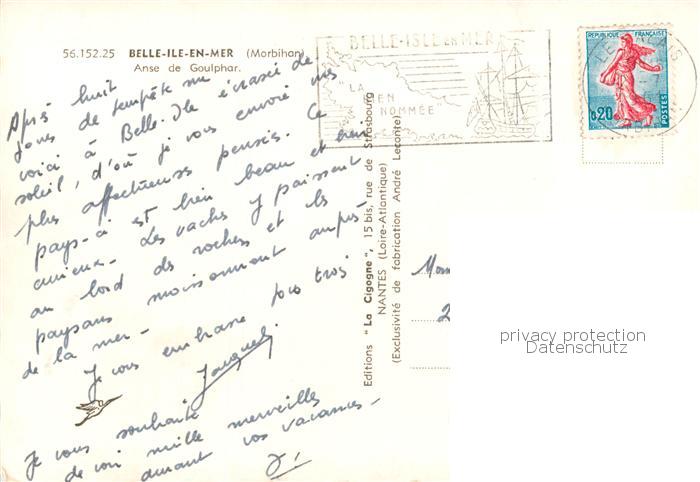 56.152.25 BELLE-ILE-EN-MER (Morbihan)
Anse de Goulphar.
BELLE-ISLE EN MER
LA
BIEN
NOMMÉE
LE PALAIS
REPUBLIQUE FRANÇAISE
0,20
POSTES
Après huit
jours de tempête me
voici à Belle-Ile écrasée de
soleil, d'où je vous envoie mes
plus affectueuses pensées. Ce
pays-ci est bien beau et bien
curieux. Les vaches y paissent
au bord des roches et les
paysans moissonnent auprès
de la mer.
Je vous embrasse tous trois
Jacques
Je vous souhaite
de voir mille merveilles
durant vos vacances.
J.
Editions "La Cigogne", 15 bis, rue de Strasbourg
NANTES (Loire-Atlantique)
(Exclusivité de fabrication André Leconte)
2
privacy protection
Datenschutz